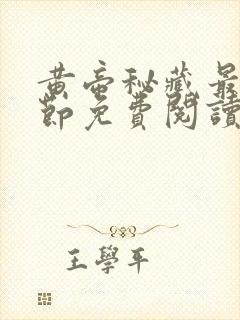 黄帝秘藏最
節免費閱讀
王學平